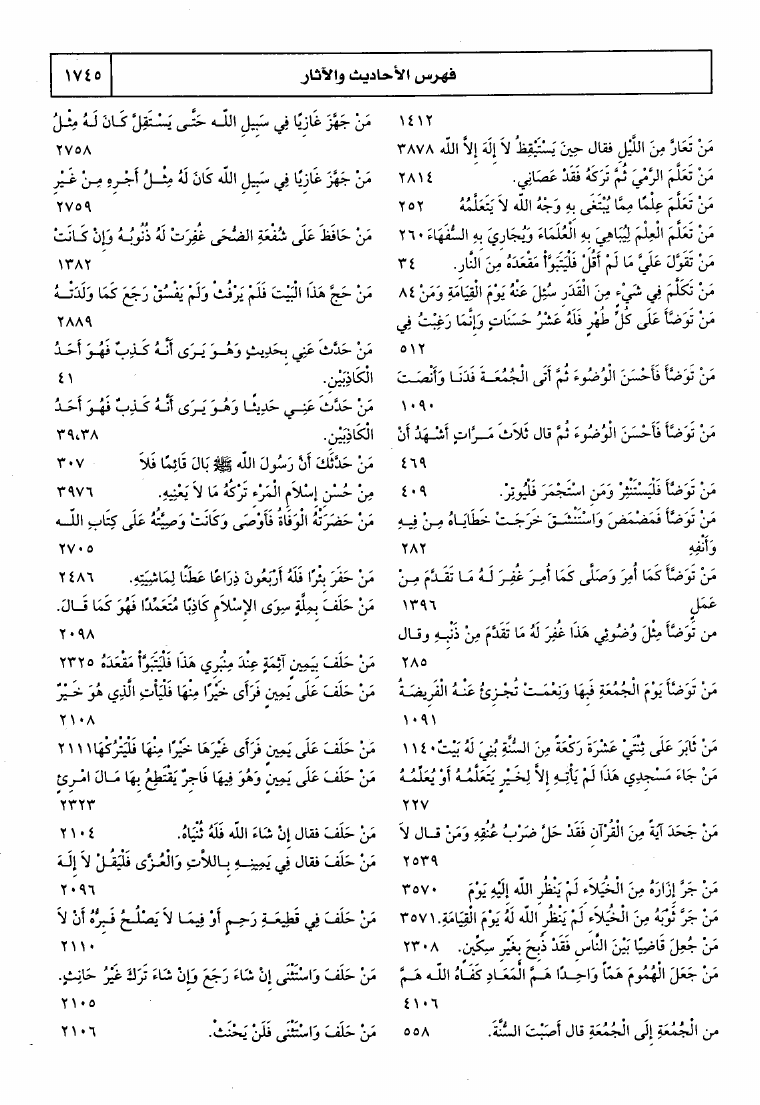 فهرس الأحاديث والآثار
١٧٤٥
١٤١٢
مَنْ تَعَارَّ مِنَ اللَّيْلِ فقال حِينَ يَسْتَيْقِظُ لاَ إِلَهَ إلاَّ الله ٣٨٧٨
مَنْ تَعَلَّمَ الرَّمْيَ ثُمَّ تَرَكَهُ فَقَدْ عَصَانِي. ٢٨١٤
مَنْ تَعَلَّمَ عِلْمًا مِمَّا يُبْتَغَى بِهِ وَجْهُ الله لاَ يَتَعَلَّمُهُ ٢٥٢
مَنْ تَعَلَّمَ الْعِلْمَ لِيُبَاهِيَ بِهِ الْعُلَمَاءَ وَيُجَارِيَ بِهِ السُّفَهَاءَ ٢٦٠
مَنْ تَقَوَّلَ عَلَيَّ مَا لَمْ أَقُلْ فَلْيَتَبَوَّأْ مَقْعَدَهُ مِنَ النَّارِ. ٣٤
مَنْ تَكَلَّمَ فِي شَيْءٍ مِنَ الْقَدَرِ سُئِلَ عَنْهُ يَوْمَ الْقِيَامَةِ وَمَنْ ٨٤
مَنْ تَوَضَّأَ عَلَى كُلِّ طُهْرٍ فَلَهُ عَشْرُ حَسَنَاتٍ وَإِنَّمَا رَغِبْتُ فِي
٥١٢
مَنْ تَوَضَّأَ فَأَحْسَنَ الْوُضُوءَ ثُمَّ أَتَى الْجُمُعَةَ فَدَنَا وَأَنْصَتَ
١٠٩٠
مَنْ تَوَضَّأَ فَأَحْسَنَ الْوُضُوءَ ثُمَّ قال ثَلاَثَ مَرَّاتٍ أَشْهَدُ أَنْ
٤٦٩
مَنْ تَوَضَّأَ فَلْيَسْتَنْثِرْ وَمَنِ اسْتَجْمَرَ فَلْيُوتِرْ. ٤٠٩
مَنْ تَوَضَّأَ فَمَضْمَضَ وَاسْتَنْشَقَ خَرَجَتْ خَطَايَاهُ مِنْ فِيهِ
وَأَنْفِهِ ٢٨٢
مَنْ تَوَضَّأَ كَمَا أُمِرَ وَصَلَّى كَمَا أُمِرَ غُفِرَ لَهُ مَا تَقَدَّمَ مِنْ
عَمَلٍ ١٣٩٦
من تَوَضَّأَ مِثْلَ وُضُوئِي هَذَا غُفِرَ لَهُ مَا تَقَدَّمَ مِنْ ذَنْبِهِ وقال
٢٨٥
مَنْ تَوَضَّأَ يَوْمَ الْجُمُعَةِ فَبِهَا وَنِعْمَتْ تُجْزِئُ عَنْهُ الْفَرِيضَةُ
١٠٩١
مَنْ ثَابَرَ عَلَى ثِنْتَيْ عَشْرَةَ رَكْعَةً مِنَ السُّنَّةِ بُنِيَ لَهُ بَيْتٌ ١١٤٠
مَنْ جَاءَ مَسْجِدِي هَذَا لَمْ يَأْتِهِ إِلاَّ لِخَيْرٍ يَتَعَلَّمُهُ أَوْ يُعَلِّمُهُ
٢٢٧
مَنْ جَحَدَ آيَةً مِنَ الْقُرْآنِ فَقَدْ حَلَّ ضَرْبُ عُنُقِهِ وَمَنْ قال لاَ
٢٥٣٩
مَنْ جَرَّ إِزَارَهُ مِنَ الْخُيَلاَءِ لَمْ يَنْظُرِ الله إِلَيْهِ يَوْمَ ٣٥٧٠
مَنْ جَرَّ ثَوْبَهُ مِنَ الْخُيَلاَءِ لَمْ يَنْظُرِ الله لَهُ يَوْمَ الْقِيَامَةِ. ٣٥٧١
مَنْ جُعِلَ قَاضِيًا بَيْنَ النَّاسِ فَقَدْ ذُبِحَ بِغَيْرِ سِكِّينٍ. ٢٣٠٨
مَنْ جَعَلَ الْهُمُومَ هَمًّا وَاحِدًا هَمَّ الْمَعَادِ كَفَاهُ الله هَمَّ
٤١٠٦
من الْجُمُعَةِ إِلَى الْجُمُعَةِ قال أَصَبْتَ السُّنَّةَ. ٥٥٨
مَنْ جَهَّزَ غَازِيًا فِي سَبِيلِ الله حَتَّى يَسْتَقِلَّ كَانَ لَهُ مِثْلُ
٢٧٥٨
مَنْ جَهَّزَ غَازِيًا فِي سَبِيلِ الله كَانَ لَهُ مِثْلُ أَجْرِهِ مِنْ غَيْرِ
٢٧٥٩
مَنْ حَافَظَ عَلَى شُفْعَةِ الضُّحَى غُفِرَتْ لَهُ ذُنُوبُهُ وَإِنْ كَانَتْ
١٣٨٢
مَنْ حَجَّ هَذَا الْبَيْتَ فَلَمْ يَرْفُثْ وَلَمْ يَفْسُقْ رَجَعَ كَمَا وَلَدَتْهُ
٢٨٨٩
مَنْ حَدَّثَ عَنِّي بِحَدِيثٍ وَهُوَ يَرَى أَنَّهُ كَذِبٌ فَهُوَ أَحَدُ
الْكَاذِبَيْنِ. ٤١
مَنْ حَدَّثَ عَنِّي حَدِيثًا وَهُوَ يَرَى أَنَّهُ كَذِبٌ فَهُوَ أَحَدُ
الْكَاذِبَيْنِ. ٣٩،٣٨
مَنْ حَدَّثَكَ أَنَّ رَسُولَ الله ﷺ بَالَ قَائِمًا فَلاَ ٣٠٧
مِنْ حُسْنِ إِسْلاَمِ الْمَرْءِ تَرْكُهُ مَا لاَ يَعْنِيهِ. ٣٩٧٦
مَنْ حَضَرَتْهُ الْوَفَاةُ فَأَوْصَى وَكَانَتْ وَصِيَّتُهُ عَلَى كِتَابِ الله
٢٧٠٥
مَنْ حَفَرَ بِئْرًا فَلَهُ أَرْبَعُونَ ذِرَاعًا عَطَنًا لِمَاشِيَتِهِ. ٢٤٨٦
مَنْ حَلَفَ بِمِلَّةٍ سِوَى الإِسْلاَمِ كَاذِبًا مُتَعَمِّدًا فَهُوَ كَمَا قَالَ.
٢٠٩٨
مَنْ حَلَفَ بِيَمِينٍ آثِمَةٍ عِنْدَ مِنْبَرِي هَذَا فَلْيَتَبَوَّأْ مَقْعَدَهُ ٢٣٢٥
مَنْ حَلَفَ عَلَى يَمِينٍ فَرَأَى خَيْرًا مِنْهَا فَلْيَأْتِ الَّذِي هُوَ خَيْرٌ
٢١٠٨
مَنْ حَلَفَ عَلَى يَمِينٍ فَرَأَى غَيْرَهَا خَيْرًا مِنْهَا فَلْيَتْرُكْهَا ٢١١١
مَنْ حَلَفَ عَلَى يَمِينٍ وَهُوَ فِيهَا فَاجِرٌ يَقْتَطِعُ بِهَا مَالَ امْرِئٍ
٢٣٢٣
مَنْ حَلَفَ فقال إِنْ شَاءَ الله فَلَهُ ثُنْيَاهُ. ٢١٠٤
مَنْ حَلَفَ فقال فِي يَمِينِهِ بِاللاَّتِ وَالْعُزَّى فَلْيَقُلْ لاَ إِلَهَ
٢٠٩٦
مَنْ حَلَفَ فِي قَطِيعَةِ رَحِمٍ أَوْ فِيمَا لاَ يَصْلُحُ فَبِرُّهُ أَنْ لاَ
٢١١٠
مَنْ حَلَفَ وَاسْتَثْنَى إِنْ شَاءَ رَجَعَ وَإِنْ شَاءَ تَرَكَ غَيْرُ حَانِثٍ.
٢١٠٥
مَنْ حَلَفَ وَاسْتَثْنَى فَلَنْ يَحْنَثْ. ٢١٠٦